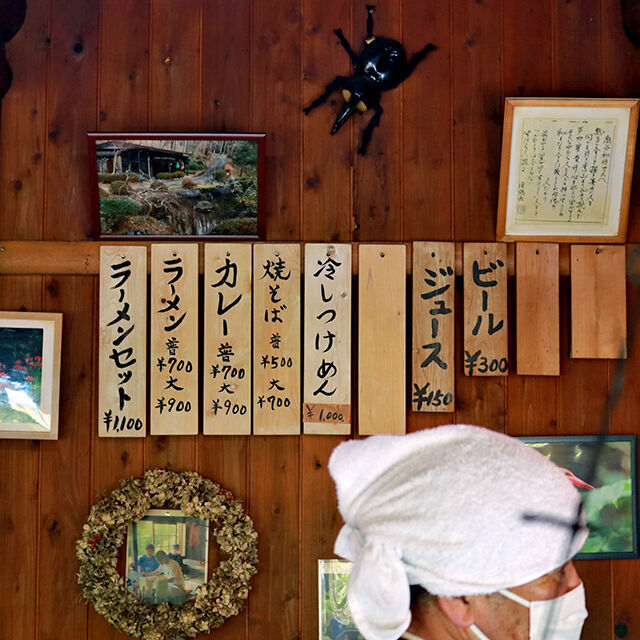 ラーメンセット
¥1,100
ラーメン
普
¥700
大
¥900
カレー
普
¥700
大
¥900
焼そば
普
¥500
大
¥700
冷しつけめん
¥1,000
ジュース
¥150
ビール
¥300